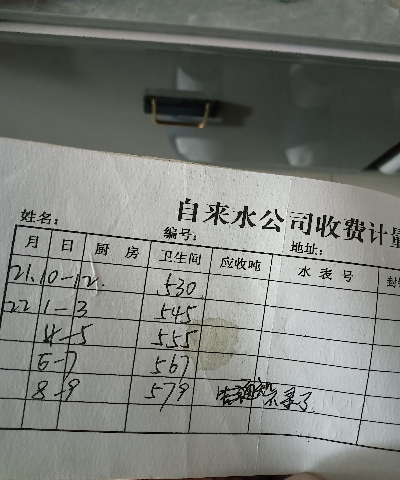 自来水公司收费计量
姓名： 编号： 地址：
月 日 厨房 卫生间 应收吨 水表号 封
21.10-12. 530
22 1-3 545
4-5 555
6-7 567
8-9 579 不录了